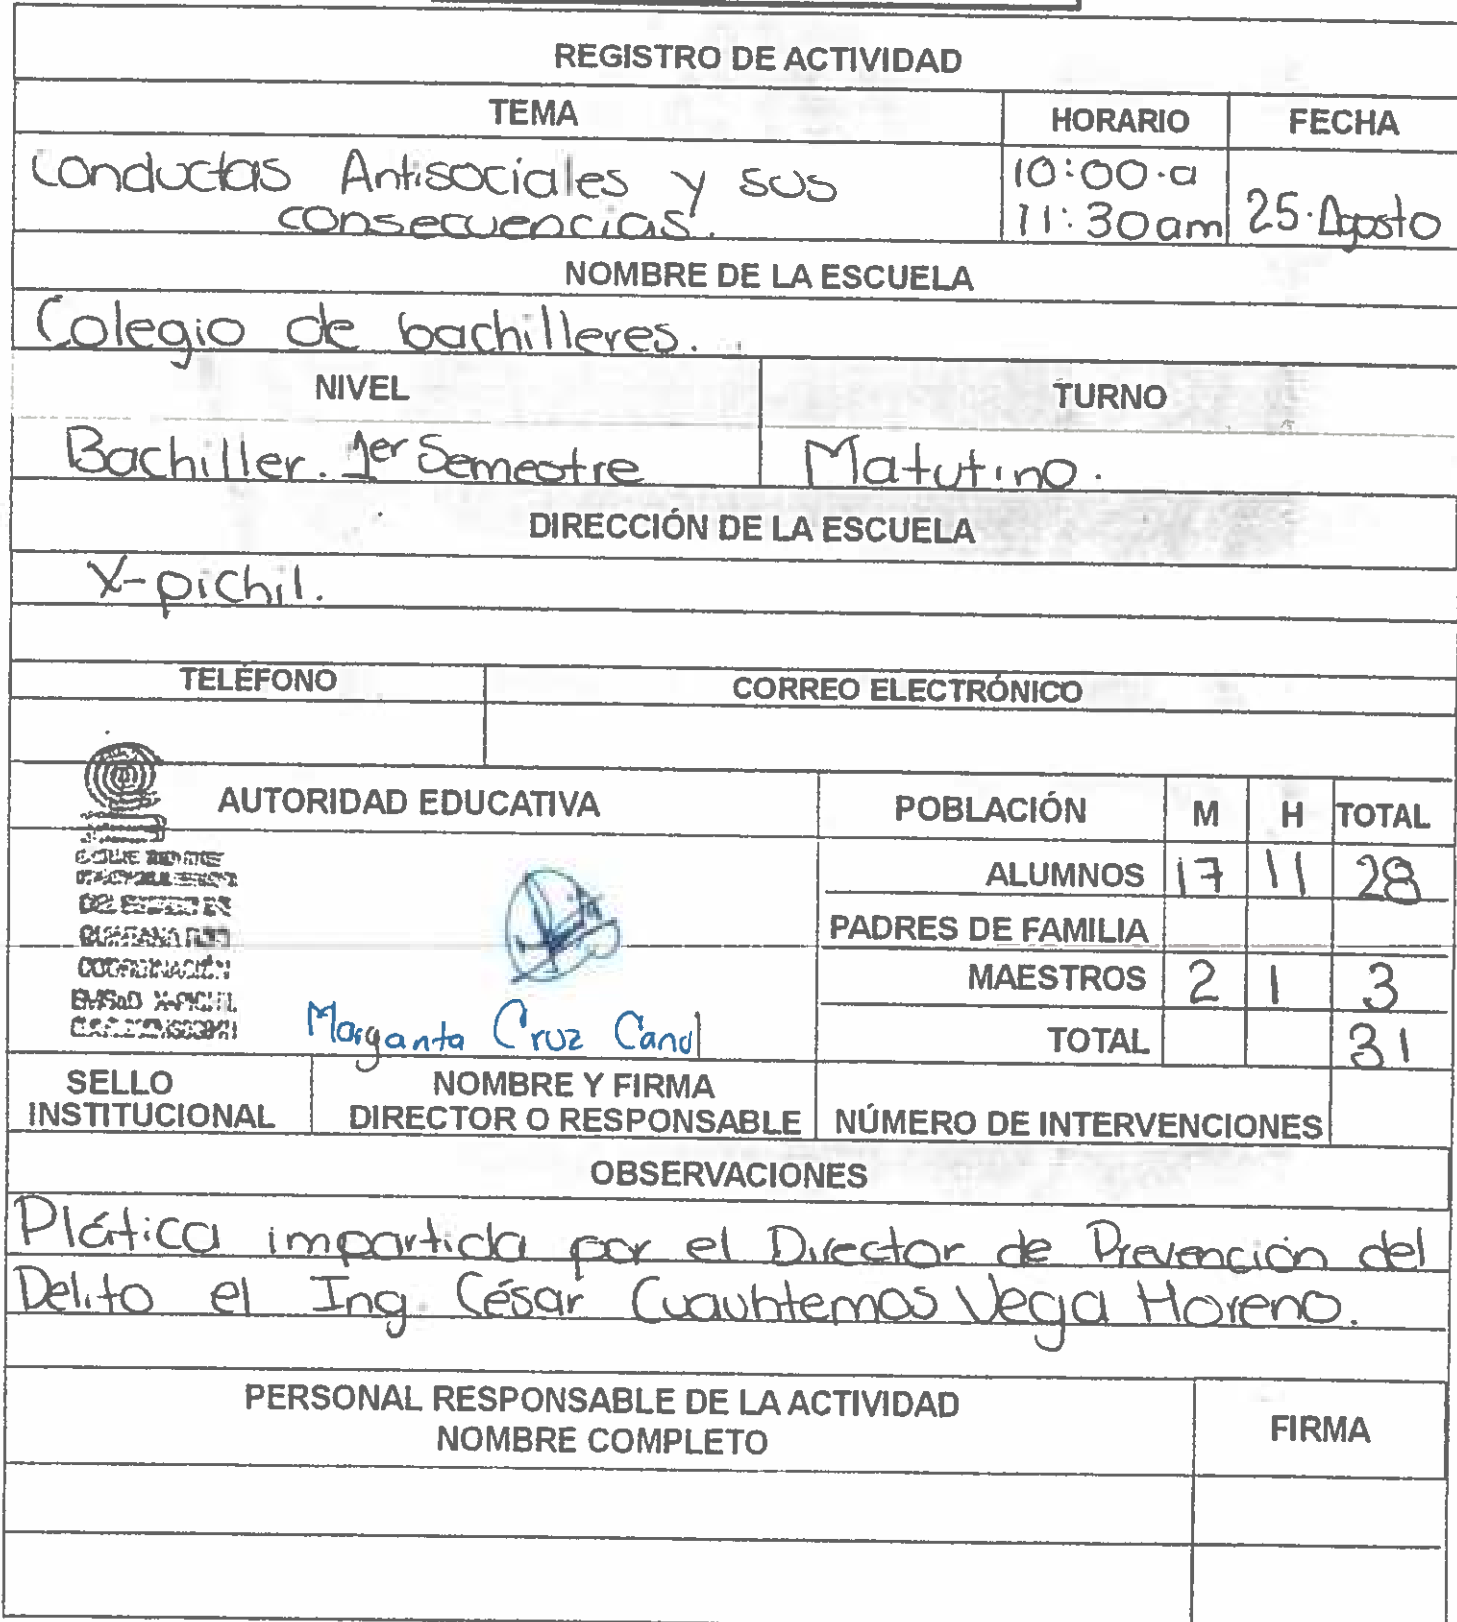 REGISTRO DE ACTIVIDAD
TEMA HORARIO FECHA
Conductas Antisociales y sus consecuencias.
10:00·a 11:30am
25·Agosto
NOMBRE DE LA ESCUELA
Colegio de bachilleres.
NIVEL TURNO
Bachiller. 1er Semestre Matutino.
DIRECCIÓN DE LA ESCUELA
X-pichil.
TELÉFONO CORREO ELECTRÓNICO
AUTORIDAD EDUCATIVA POBLACIÓN M H TOTAL
ALUMNOS 17 11 28
PADRES DE FAMILIA
MAESTROS 2 1 3
TOTAL 31
DEL ESTADO DE
QUINTANA ROO
COORDINACIÓN
EMSaD X-PICHIL
Margarita Cruz Canul
SELLO INSTITUCIONAL
NOMBRE Y FIRMA
DIRECTOR O RESPONSABLE
NÚMERO DE INTERVENCIONES
OBSERVACIONES
Plática impartida por el Director de Prevención del
Delito el Ing. César Cuauhtemos Vega Moreno.
PERSONAL RESPONSABLE DE LA ACTIVIDAD
NOMBRE COMPLETO
FIRMA